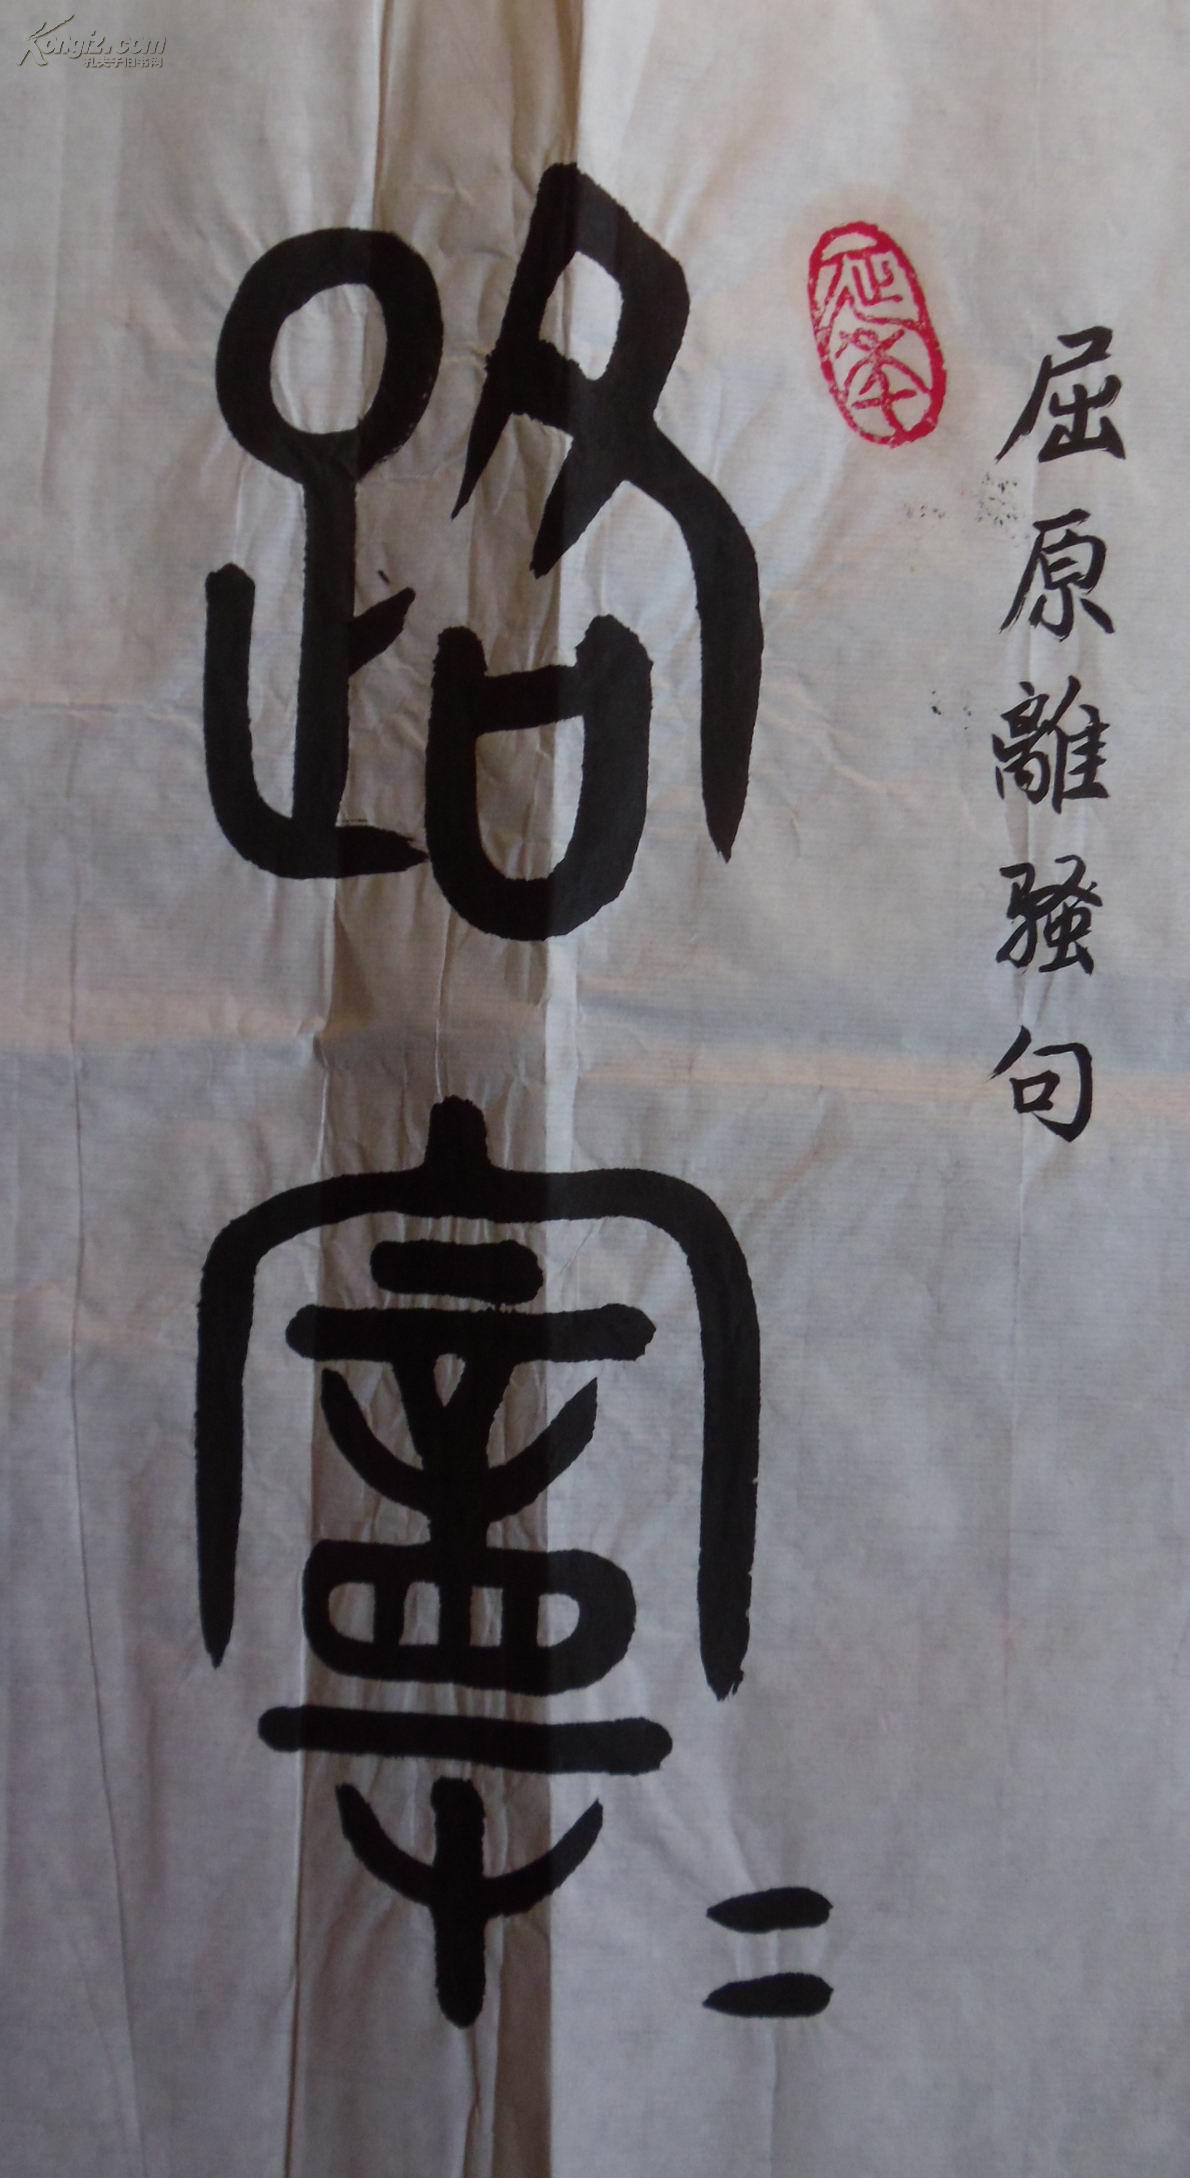 Kongfz.com
孔夫子旧书网
屈原離騷句
路